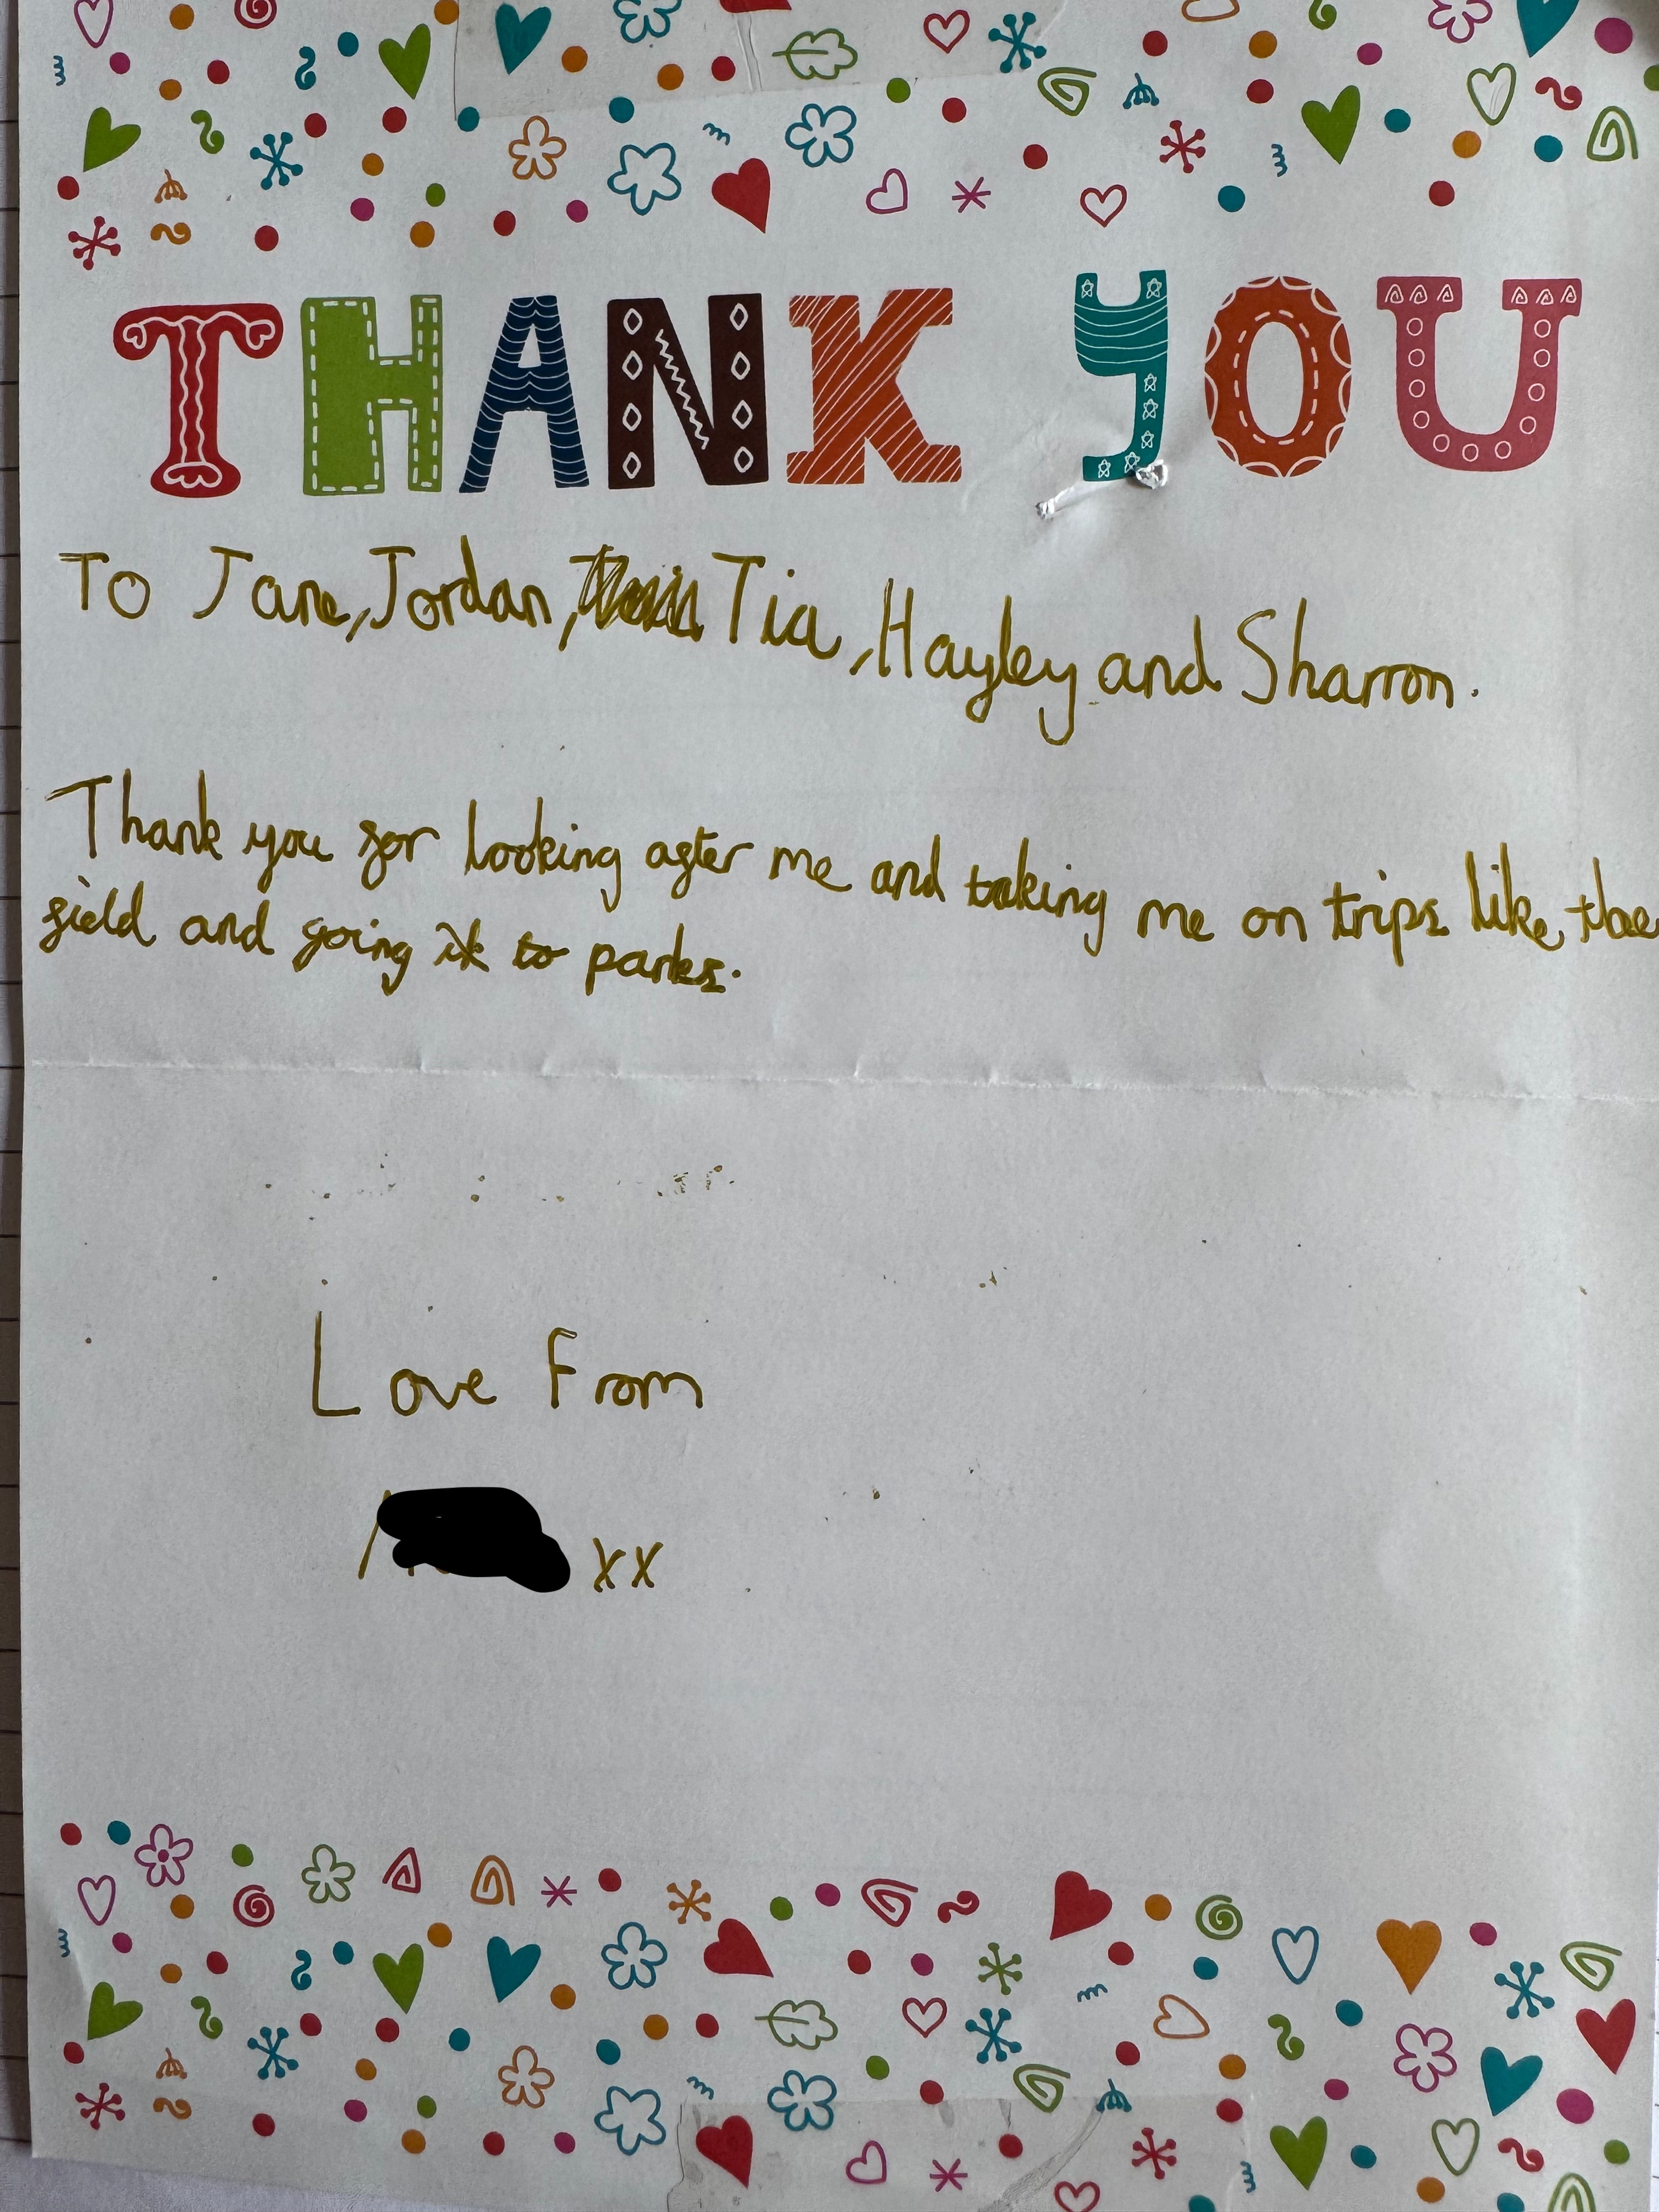 THANK YOU
To Jane, Jordan, Tia, Hayley and Sharron.
Thank you for looking after me and taking me on trips like the
field and going to parks.
Love From
xx